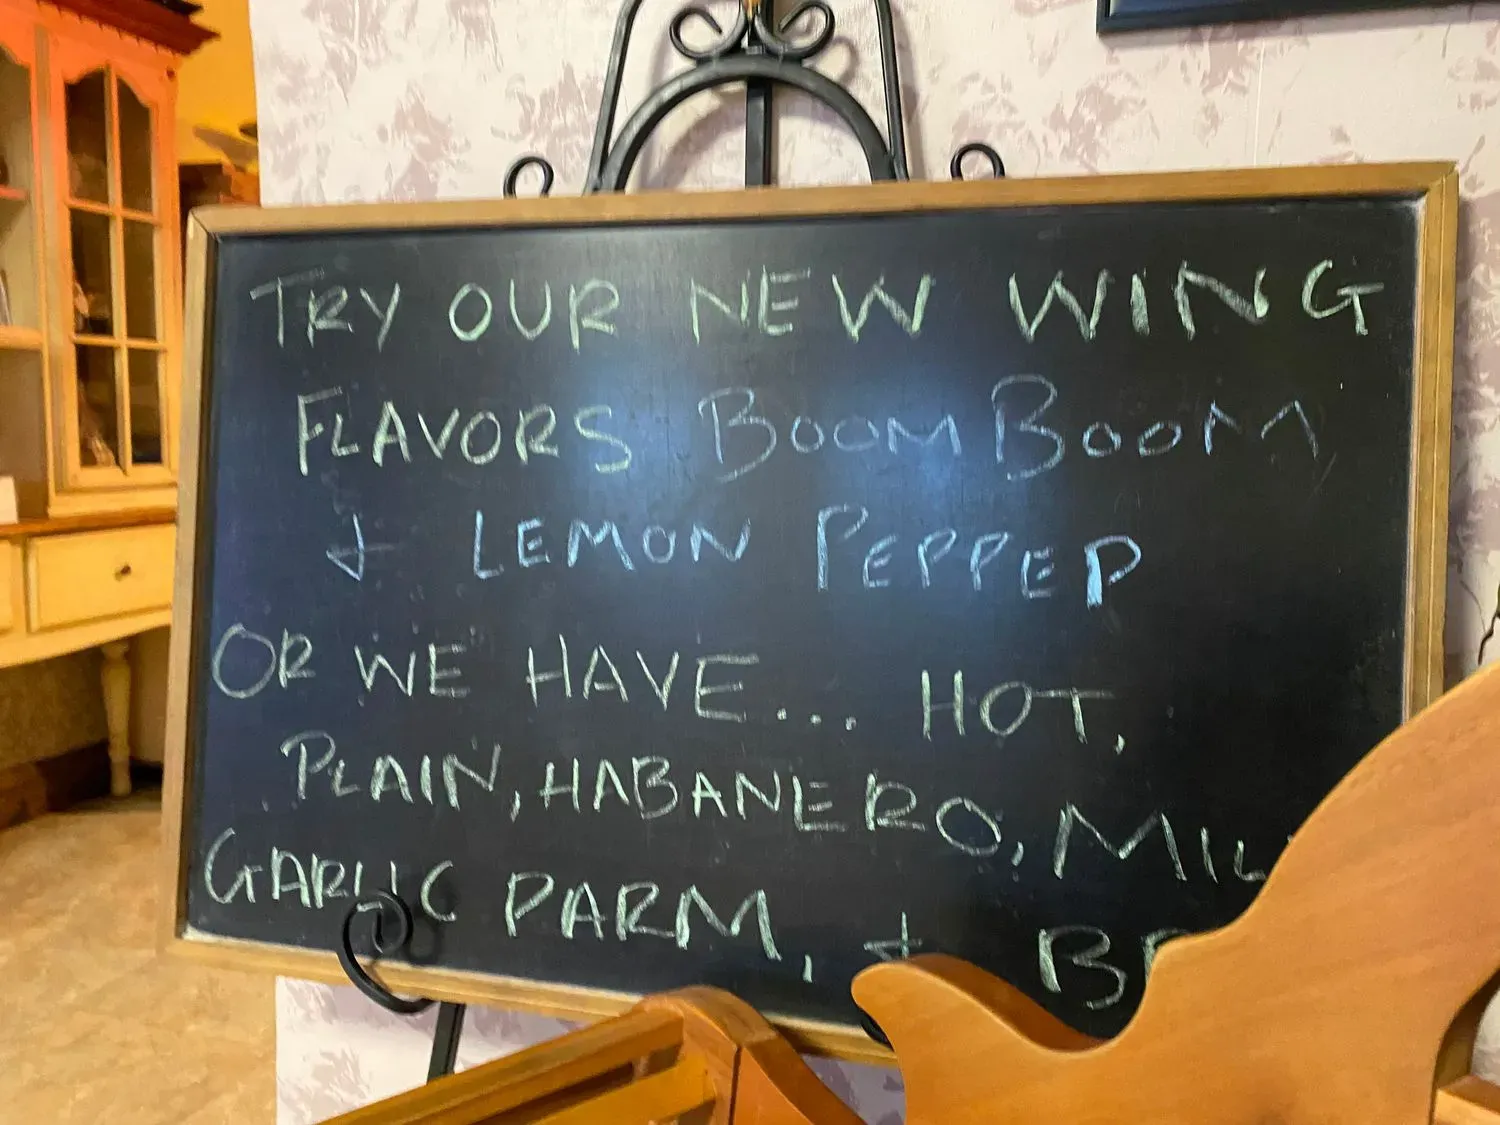 TRY OUR NEW WING
FLAVORS BOOM BOOM
+ LEMON PEPPER
OR WE HAVE... HOT,
PLAIN, HABANERO,
GARLIC PARM, +